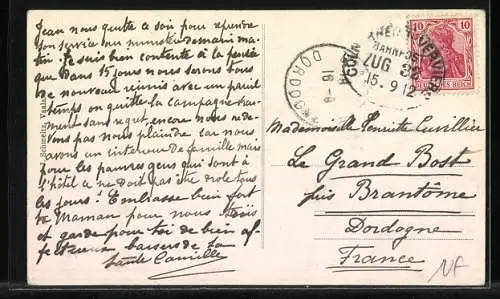 Jean nous quitte ce soir pour reprendre
son service au ministère demain ma-
tin. Je suis bien contente à la pensée
que dans 15 jours nous serons tous
de nouveau réunis avec un pareil
temps on quitte la campagne vrai-
ment sans regret, encore nous ne de-
vons pas nous plaindre car nous
avons un intérieur de famille mais
pour les pauvres gens qui sont à
l'hôtel ce ne doit pas être drôle tous
les jours! Embrasse bien fort
ta Maman pour nous
et garde pour toi de bien af-
fectueux baisers de ta
tante Camille
VERVIERS
BAHNPOST
ZUG
15 9 12
10 10
DEUTSCHES REICH
DORDOGNE
16 - 9
Mademoiselle Henriette Cuvillier
Le Grand Bost
près Brantôme
Dordogne
France